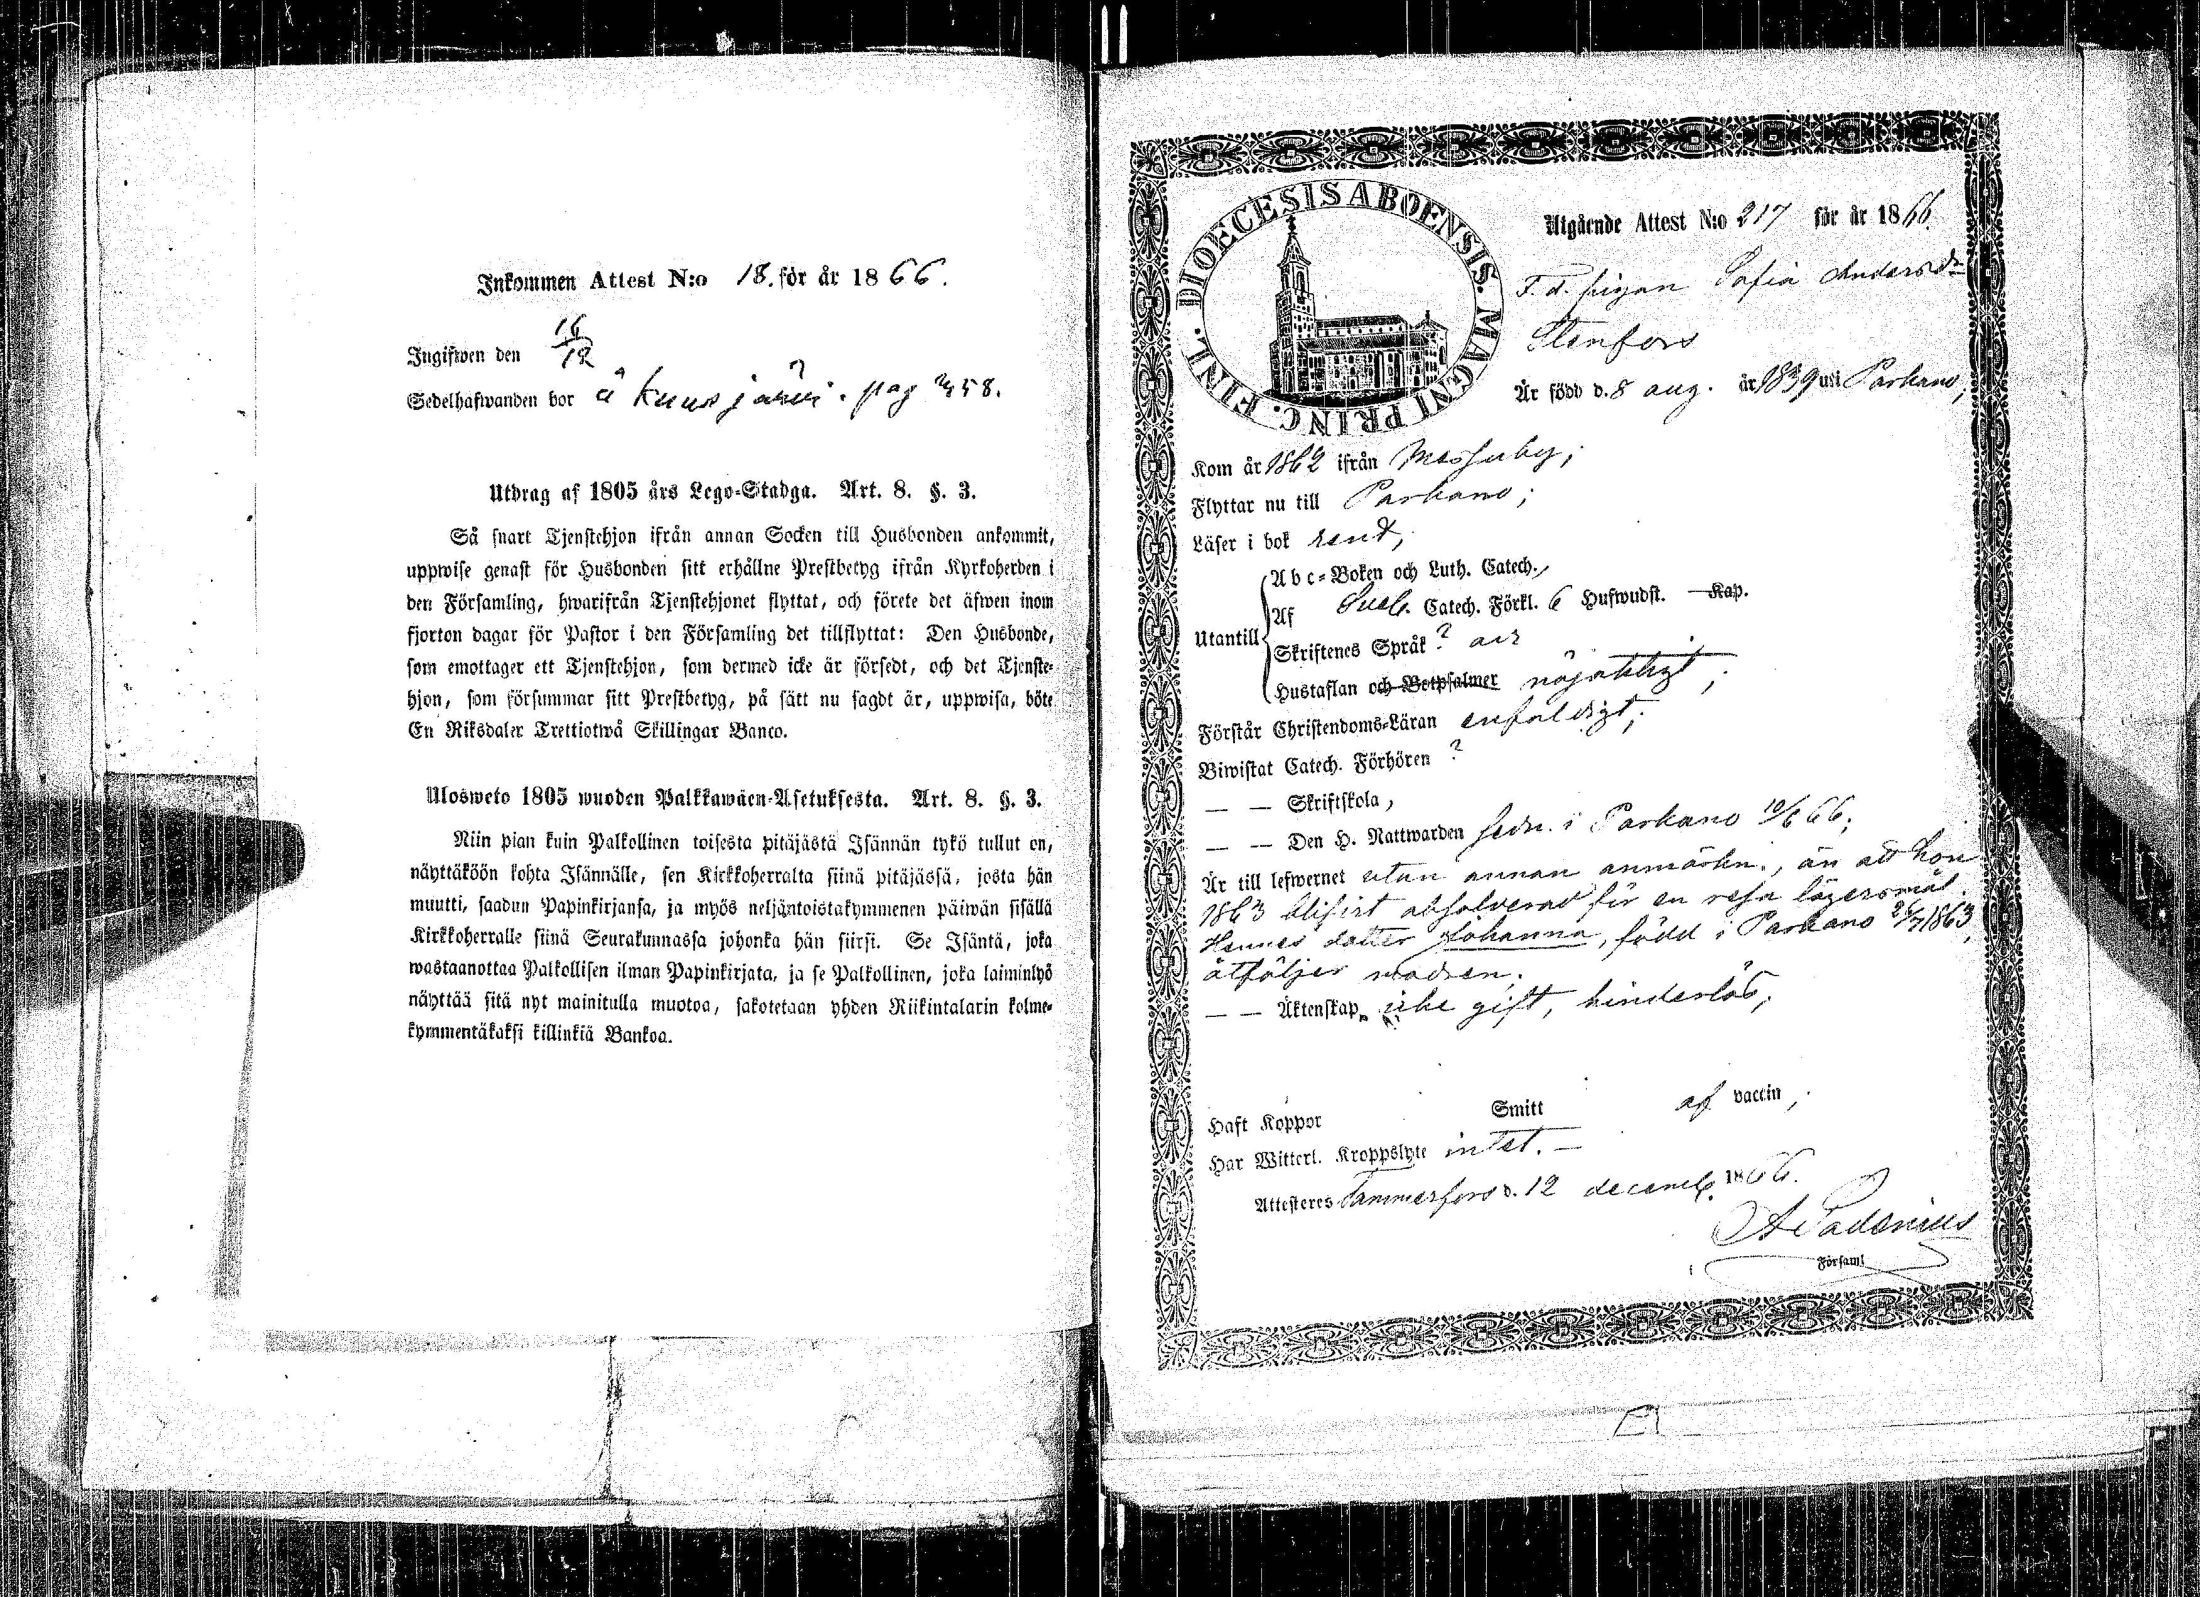 Inkommen Attest N:o 18. för år 1866.
Ingifwen den 16/12
Sedelhafwanden bor å Kuusjärvi. pag 358.
Utdrag af 1805 års Lego-Stadga. Art. 8. §. 3.
Så snart Tjenstehjon ifrån annan Socken till Husbonden ankommit,
uppwise genast för Husbonden sitt erhållne Prestbetyg ifrån Kyrkoherden i
den Församling, hwarifrån Tjenstehjonet flyttat, och förete det äfwen inom
fjorton dagar för Pastor i den Församling det tillflyttat: Den Husbonde,
som emottager ett Tjenstehjon, som dermed icke är försedt, och det Tjenste-
hjon, som försummar sitt Prestbetyg, på sätt nu sagdt är, uppwisa, böte
En Riksdaler Trettiotwå Skillingar Banco.
Ulosweto 1805 wuoden Palkkawäen-Asetuksesta. Art. 8. §. 3.
Niin pian kuin Palkollinen toisesta pitäjästä Isännän tykö tullut on,
näyttäköön kohta Isännälle, sen Kirkkoherralta siinä pitäjässä, josta hän
muutti, saadun Papinkirjansa, ja myös neljäntoistakymmenen päiwän sisällä
Kirkkoherralle siinä Seurakunnassa johonka hän siirsi. Se Isäntä, joka
wastaanottaa Palkollisen ilman Papinkirjata, ja se Palkollinen, joka laiminlyö
näyttää sitä nyt mainitulla muotoa, sakotetaan yhden Riikintalarin kolme-
kymmentäkaksi killinkiä Bankoa.
DIOECESIS ABOENSIS. MAGNI PRINC. FINL.
Utgående Attest N:o 217 för år 1866.
F. d. pigan Sofia Andersdr
Stenfors
Är född d. 8 aug. år 1839 uti Parkano;
Kom år 1862 ifrån Messuby;
Flyttar nu till Parkano;
Läser i bok rent,
Utantill
Abc-Boken och Luth. Catech.,
Af Sueb. Catech. Förkl. 6 Hufwudst. — Kap.
Skriftenes Språk?
Hustaflan och Botpsalmer nöjaktigt;
Förstår Christendoms-Läran enfaldigt;
Biwistat Catech. Förhören ?
— — Skriftskola,
— — Den H. Nattwarden sedn. i Parkano 10/6 66;
Är till lefwernet utan annan anmärkn., än att hon
1863 blifvit absolverad för en resa lägersmål.
Hennes dotter Johanna, född i Parkano 26/7 1863,
åtföljer modren;
— — Äktenskap icke gift, hinderlös;
Haft Koppor Smitt af vaccin,
Har Witterl. Kroppslyte intet. —
Attesteres Tammerfors d. 12 decemb. 1866.
Församl